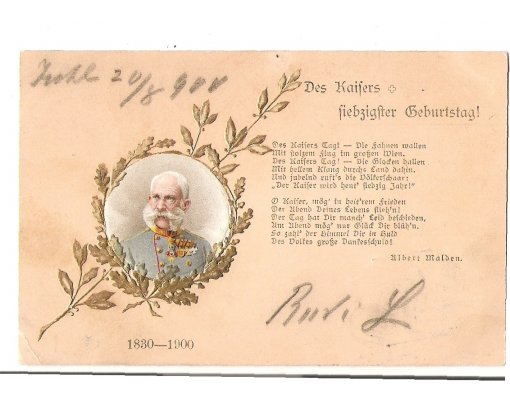 Ischl 20/8 900
Des Kaisers
siebzigster Geburtstag!
Des Kaisers Tag! — Die Fahnen wallen
Mit stolzem Flug im großen Wien.
Des Kaisers Tag! — Die Glocken hallen
Mit hellem Klang durchs Land dahin.
Und jubelnd ruft's die Völkerschaar:
„Der Kaiser wird heut' siebzig Jahr!"
O Kaiser, mög' in heit'rem Frieden
Der Abend Deines Lebens flieh'n!
Der Tag hat Dir manch' Leid beschieden,
Am Abend mög' nur Glück Dir blüh'n.
So zahl' der Himmel Dir in Huld
Des Volkes große Dankesschuld!
Albert Malden.
Rudi L
1830—1900